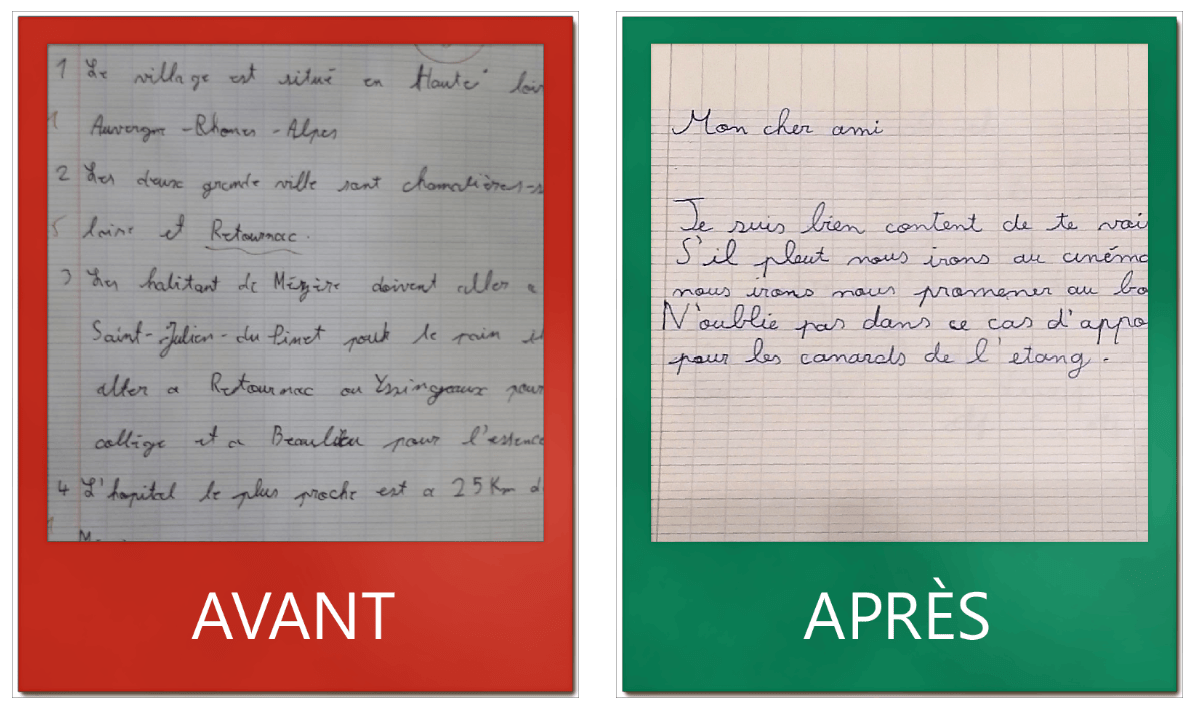 1 Le village est situé en Haute loir
Auvergne - Rhones - Alpes
2 Les deux grande ville sont chamalières-s
loire et Retournac.
3 Les habitant de Mézère doivent aller a
Saint-Julien-du Pinet pour le pain
aller a Retournac ou Yssingeaux pour
collège et a Beaulieu pour l'essence
4 L'hopital le plus proche est a 25 Km d
AVANT
Mon cher ami
Je suis bien content de te voi
S'il pleut nous irons au cinéma
nous irons nous promener au bo
N'oublie pas dans ce cas d'appo
pour les canards de l'etang.
APRÈS